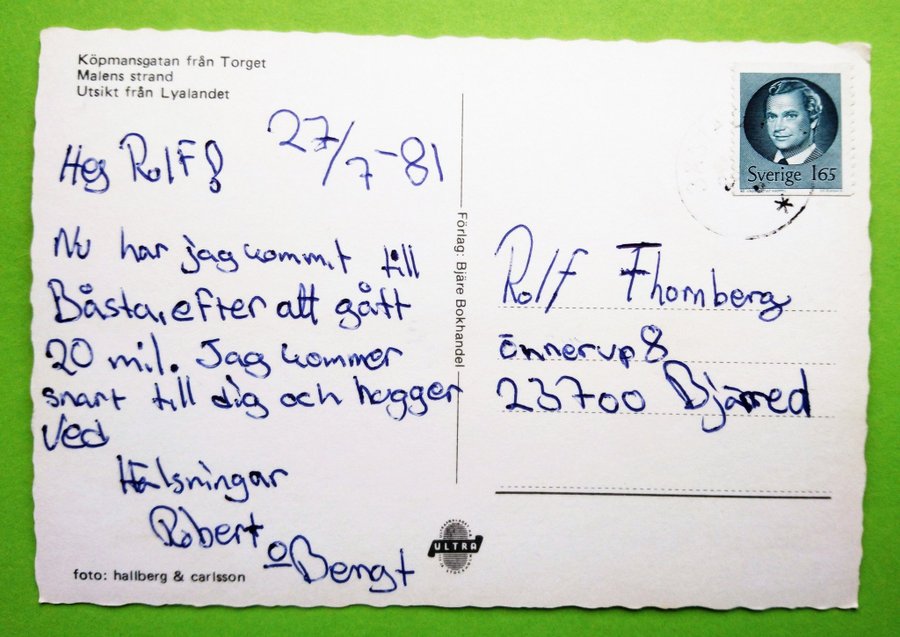 Köpmansgatan från Torget
Malens strand
Utsikt från Lyalandet
27/7-81
Hej Rolf!
Nu har jag kommit till
Båsta, efter att gått
20 mil. Jag kommer
snart till dig och hogger
ved
Hälsningar
Robert
o Bengt
foto: hallberg & carlsson
Förlag: Bjäre Bokhandel
ULTRA
Sverige 165
Rolf Fhornberg
önnerup 8
23700 Bjärred